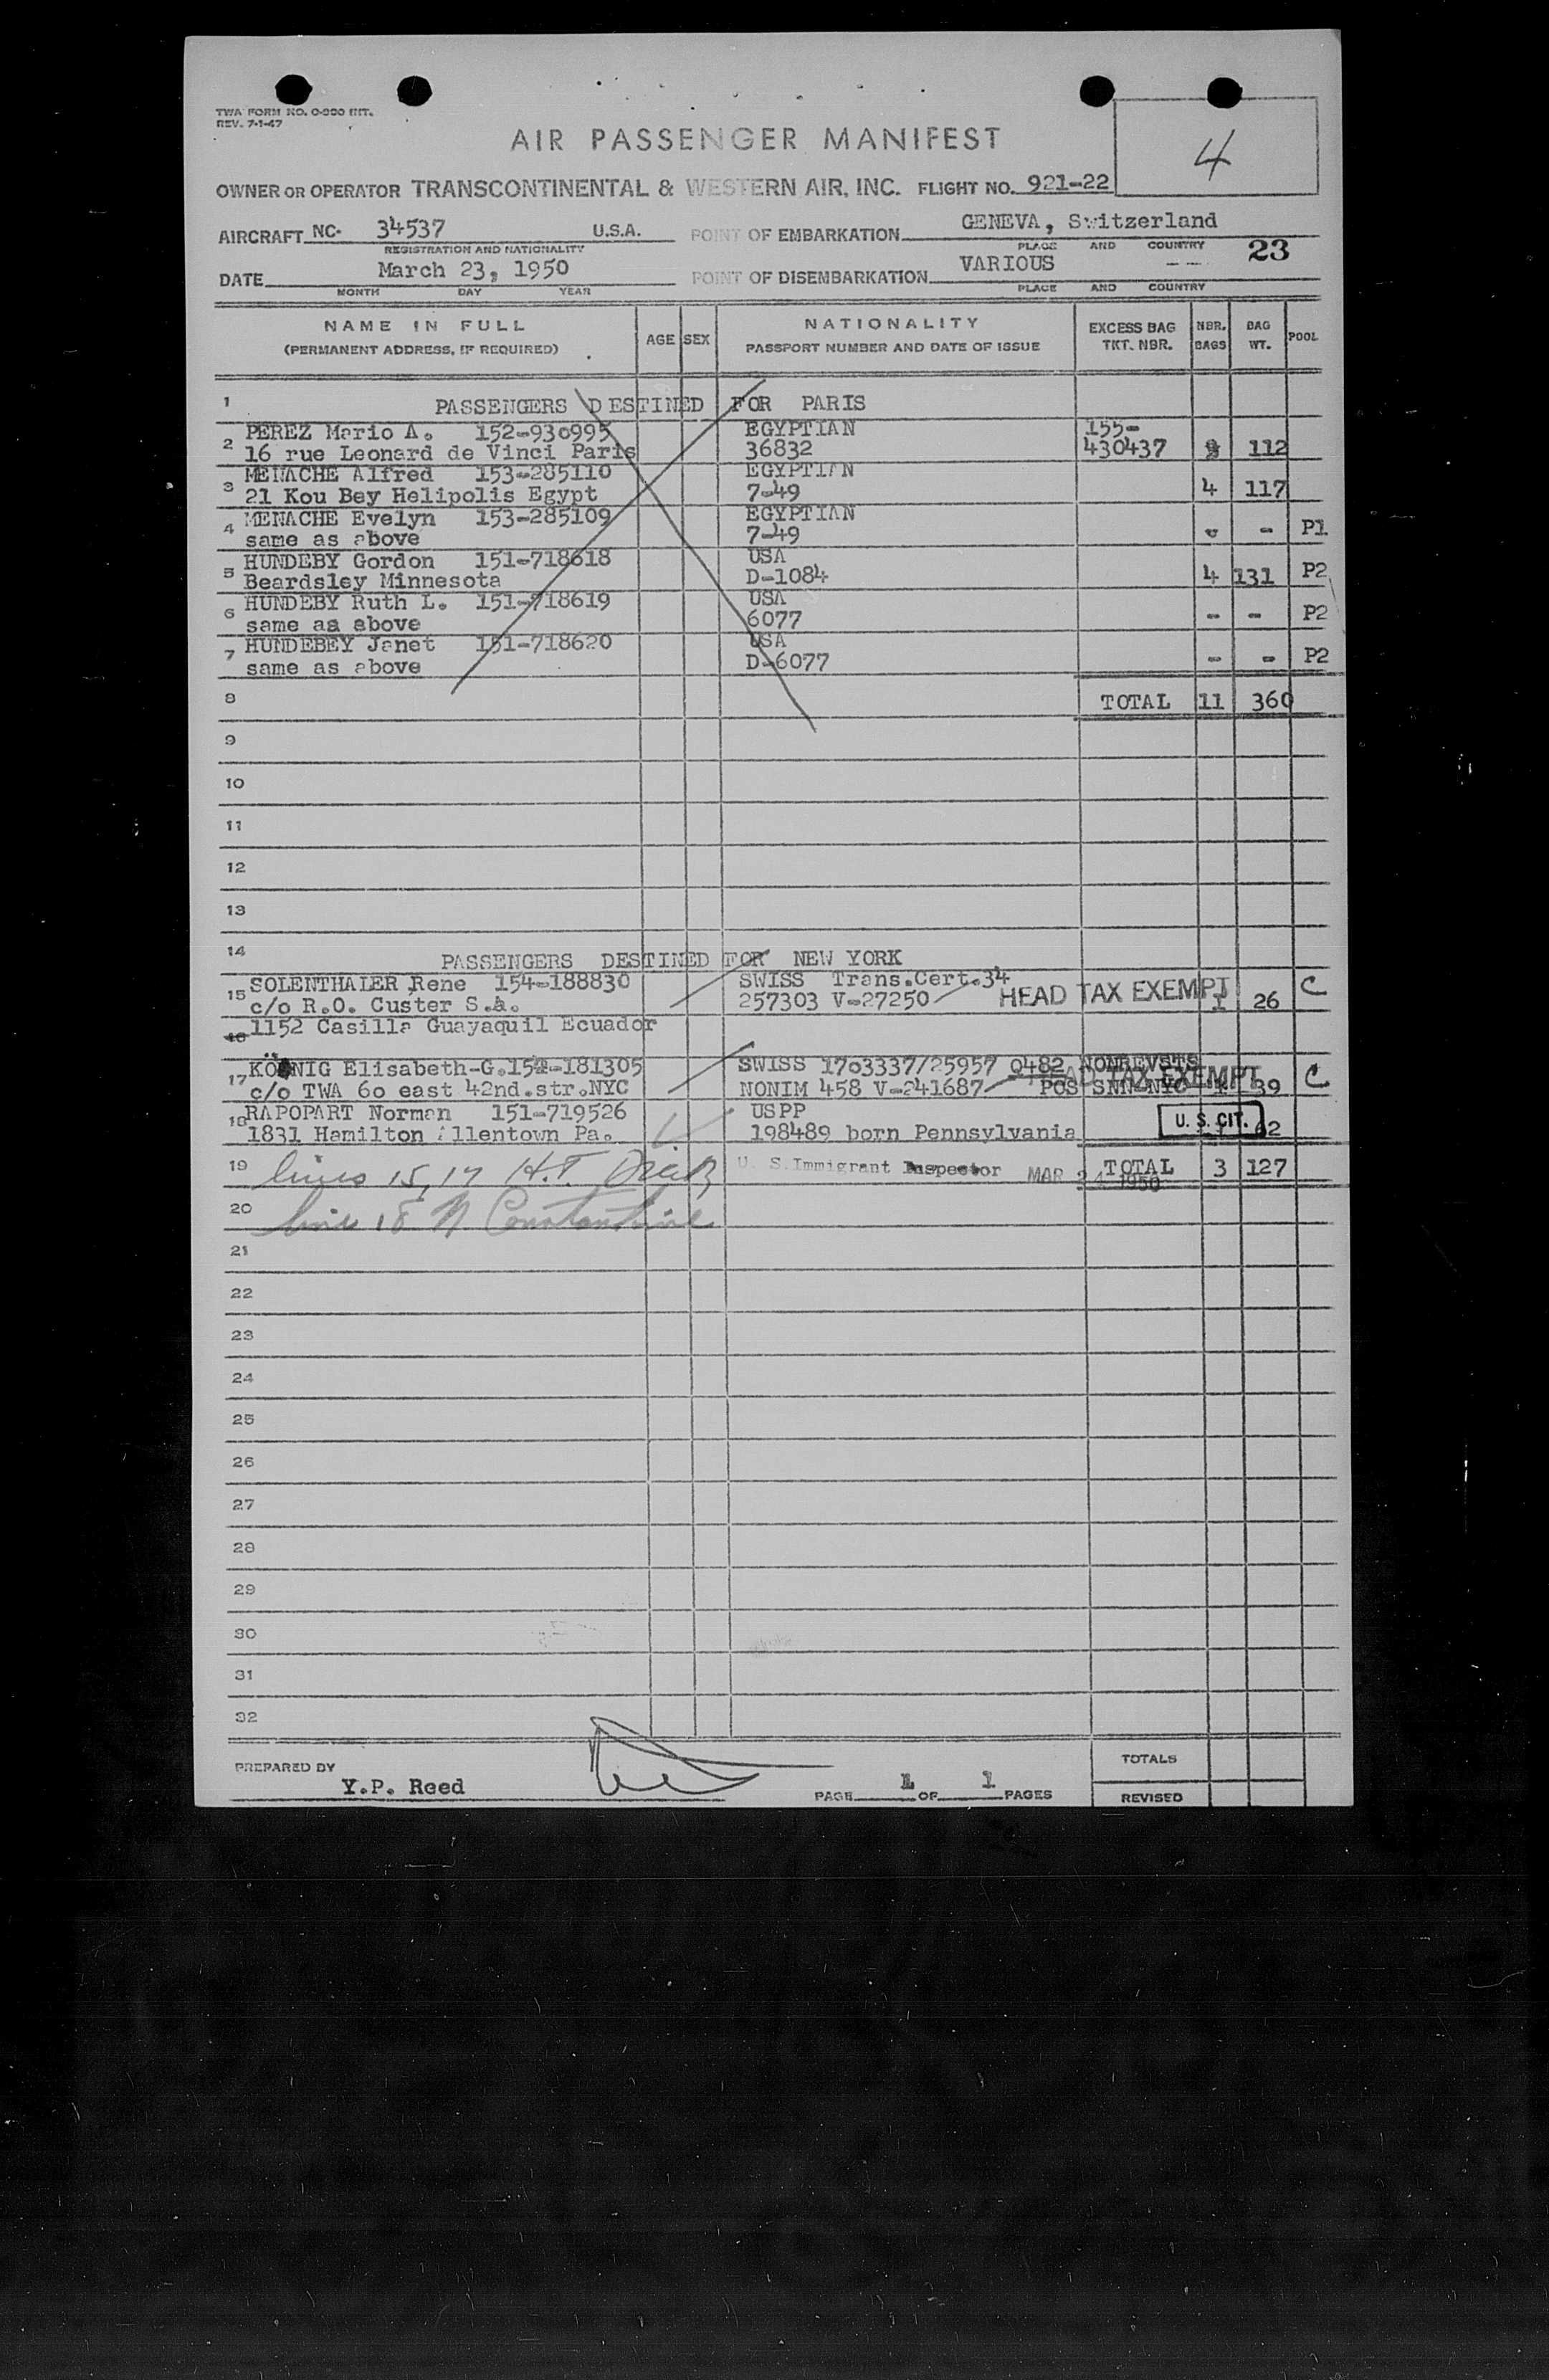 TWA FORM NO. O-900 INT.
REV. 7-1-47
AIR PASSENGER MANIFEST
4
OWNER OR OPERATOR TRANSCONTINENTAL & WESTERN AIR, INC. FLIGHT NO. 921-22
AIRCRAFT NC- 34537 U.S.A. POINT OF EMBARKATION GENEVA, Switzerland
REGISTRATION AND NATIONALITY PLACE AND COUNTRY 23
DATE March 23, 1950 POINT OF DISEMBARKATION VARIOUS ---
MONTH DAY YEAR PLACE AND COUNTRY
NAME IN FULL AGE SEX NATIONALITY EXCESS BAG NBR. BAG POOL
(PERMANENT ADDRESS, IF REQUIRED) PASSPORT NUMBER AND DATE OF ISSUE TKT. NBR. BAGS WT.
1 PASSENGERS DESTINED FOR PARIS
2 PEREZ Mario A. 152-930995 EGYPTIAN 155-
16 rue Leonard de Vinci Paris 36832 430437 112
3 MENACHE Alfred 153-285110 EGYPTIAN
21 Kou Bey Helipolis Egypt 7-49 4 117
4 MENACHE Evelyn 153-285109 EGYPTIAN
same as above 7-49 - - P1
5 HUNDEBY Gordon 151-718618 USA
Beardsley Minnesota D-1084 4 131 P2
6 HUNDEBY Ruth L. 151-718619 USA
same as above 6077 - - P2
7 HUNDEBEY Janet 151-718620 USA
same as above D-6077 - - P2
8 TOTAL 11 360
9
10
11
12
13
14 PASSENGERS DESTINED FOR NEW YORK
15 SOLENTHALER Rene 154-188830 SWISS Trans.Cert.34
c/o R.O. Custer S.A. 257303 V-27250 HEAD TAX EXEMPT 1 26 C
16 1152 Casilla Guayaquil Ecuador
17 KÖNIG Elisabeth-G.154-181305 SWISS 1703337/25957 Q482 NONREVSTS
c/o TWA 60 east 42nd.str.NYC NONIM 458 V-241687 POS SNN-NYC HEAD TAX EXEMPT 1 39 C
18 RAPOPART Norman 151-719526 USPP
1831 Hamilton Allentown Pa. 198489 born Pennsylvania U.S. CIT. 62
19 lines 15, 17 H.T. U. S. Immigrant Inspector MAR 24 1950 TOTAL 3 127
20 line 18 N Constantine
21
22
23
24
25
26
27
28
29
30
31
32
PREPARED BY TOTALS
Y.P. Reed PAGE 1 OF 1 PAGES REVISED